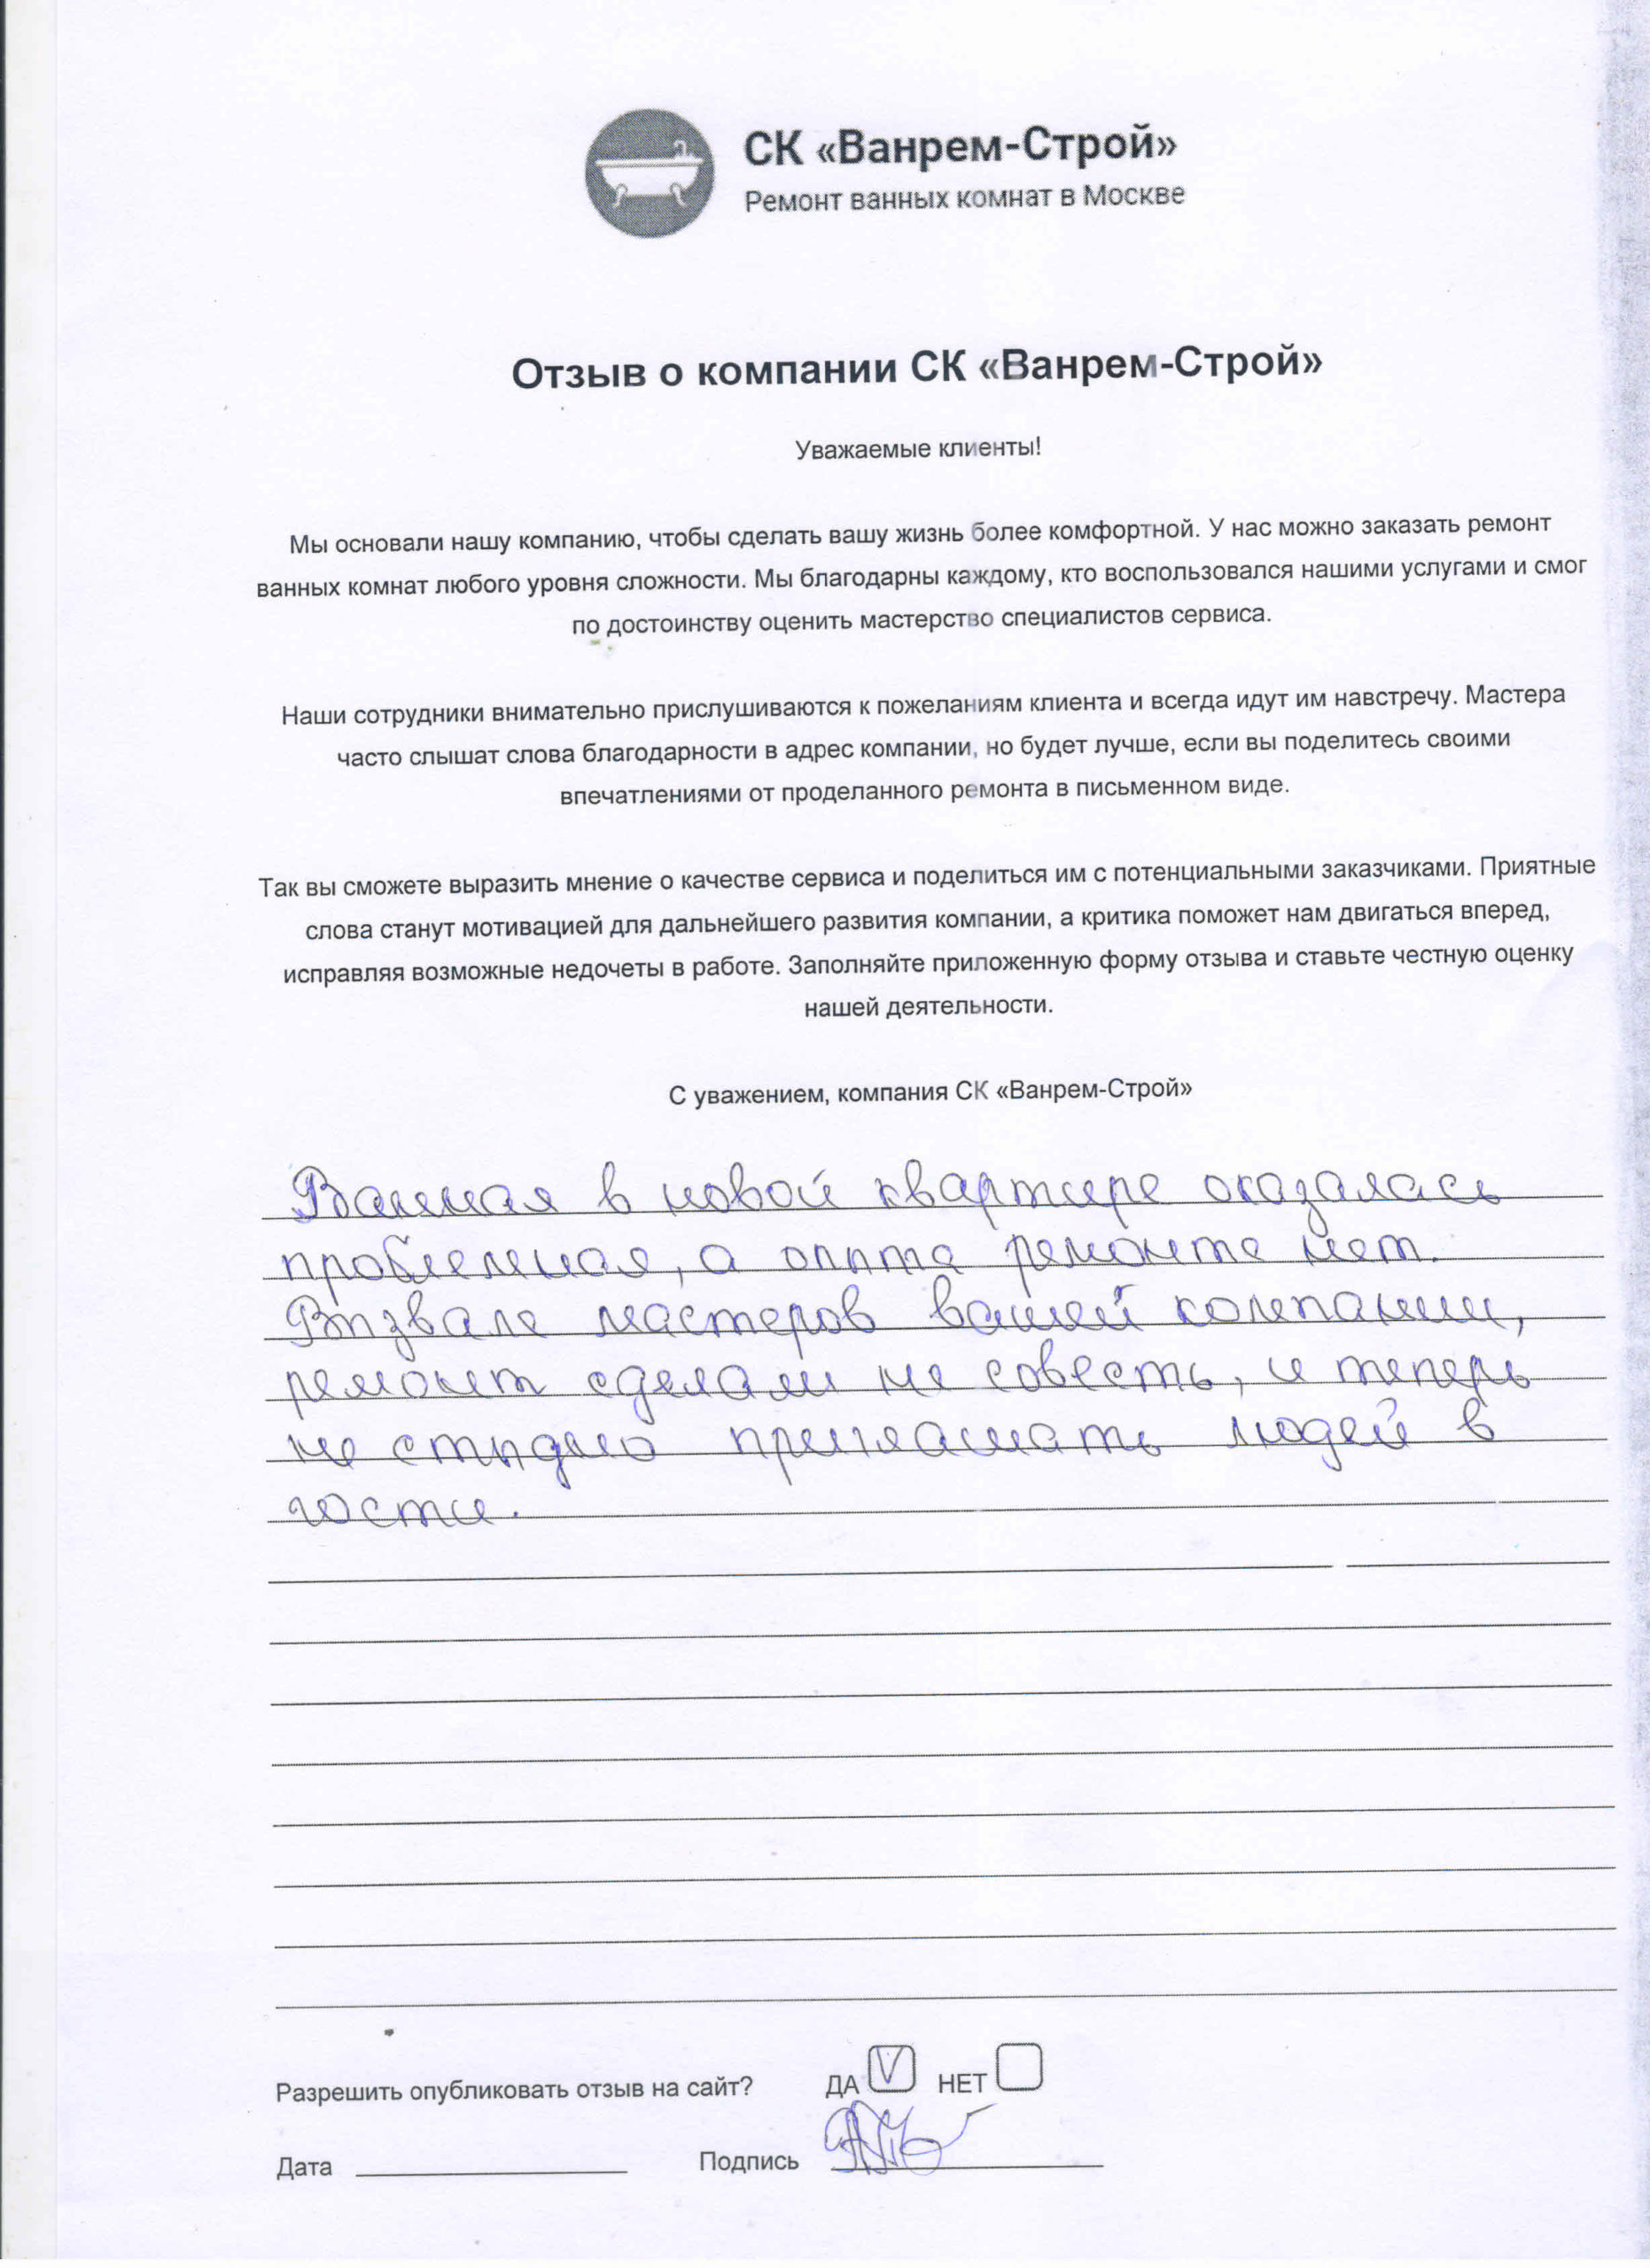 СК «Ванрем-Строй»
Ремонт ванных комнат в Москве
Отзыв о компании СК «Ванрем-Строй»
Уважаемые клиенты!
Мы основали нашу компанию, чтобы сделать вашу жизнь более комфортной. У нас можно заказать ремонт
ванных комнат любого уровня сложности. Мы благодарны каждому, кто воспользовался нашими услугами и смог
по достоинству оценить мастерство специалистов сервиса.
Наши сотрудники внимательно прислушиваются к пожеланиям клиента и всегда идут им навстречу. Мастера
часто слышат слова благодарности в адрес компании, но будет лучше, если вы поделитесь своими
впечатлениями от проделанного ремонта в письменном виде.
Так вы сможете выразить мнение о качестве сервиса и поделиться им с потенциальными заказчиками. Приятные
слова станут мотивацией для дальнейшего развития компании, а критика поможет нам двигаться вперед,
исправляя возможные недочеты в работе. Заполняйте приложенную форму отзыва и ставьте честную оценку
нашей деятельности.
С уважением, компания СК «Ванрем-Строй»
Ванная в новой квартире оказалась
проблемная, а опыта ремонта нет.
Вызвала мастеров вашей компании,
ремонт сделали на совесть, и теперь
не стыдно приглашать людей в
гости.
Разрешить опубликовать отзыв на сайт? ДА V НЕТ
Дата Подпись